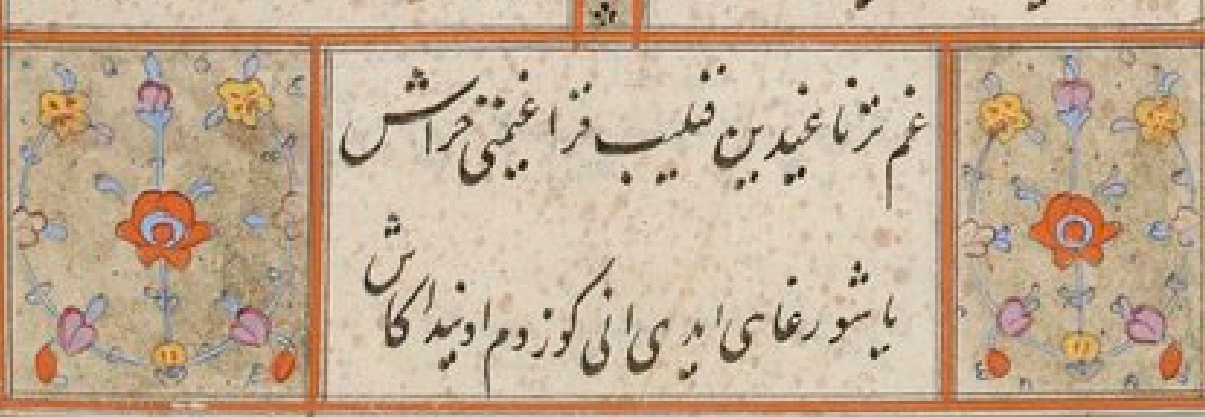 غم ترناغیدین قیلیب قراغیمنی خراش
یاشورغای ایدی انی کوزوم اوییدا کاش